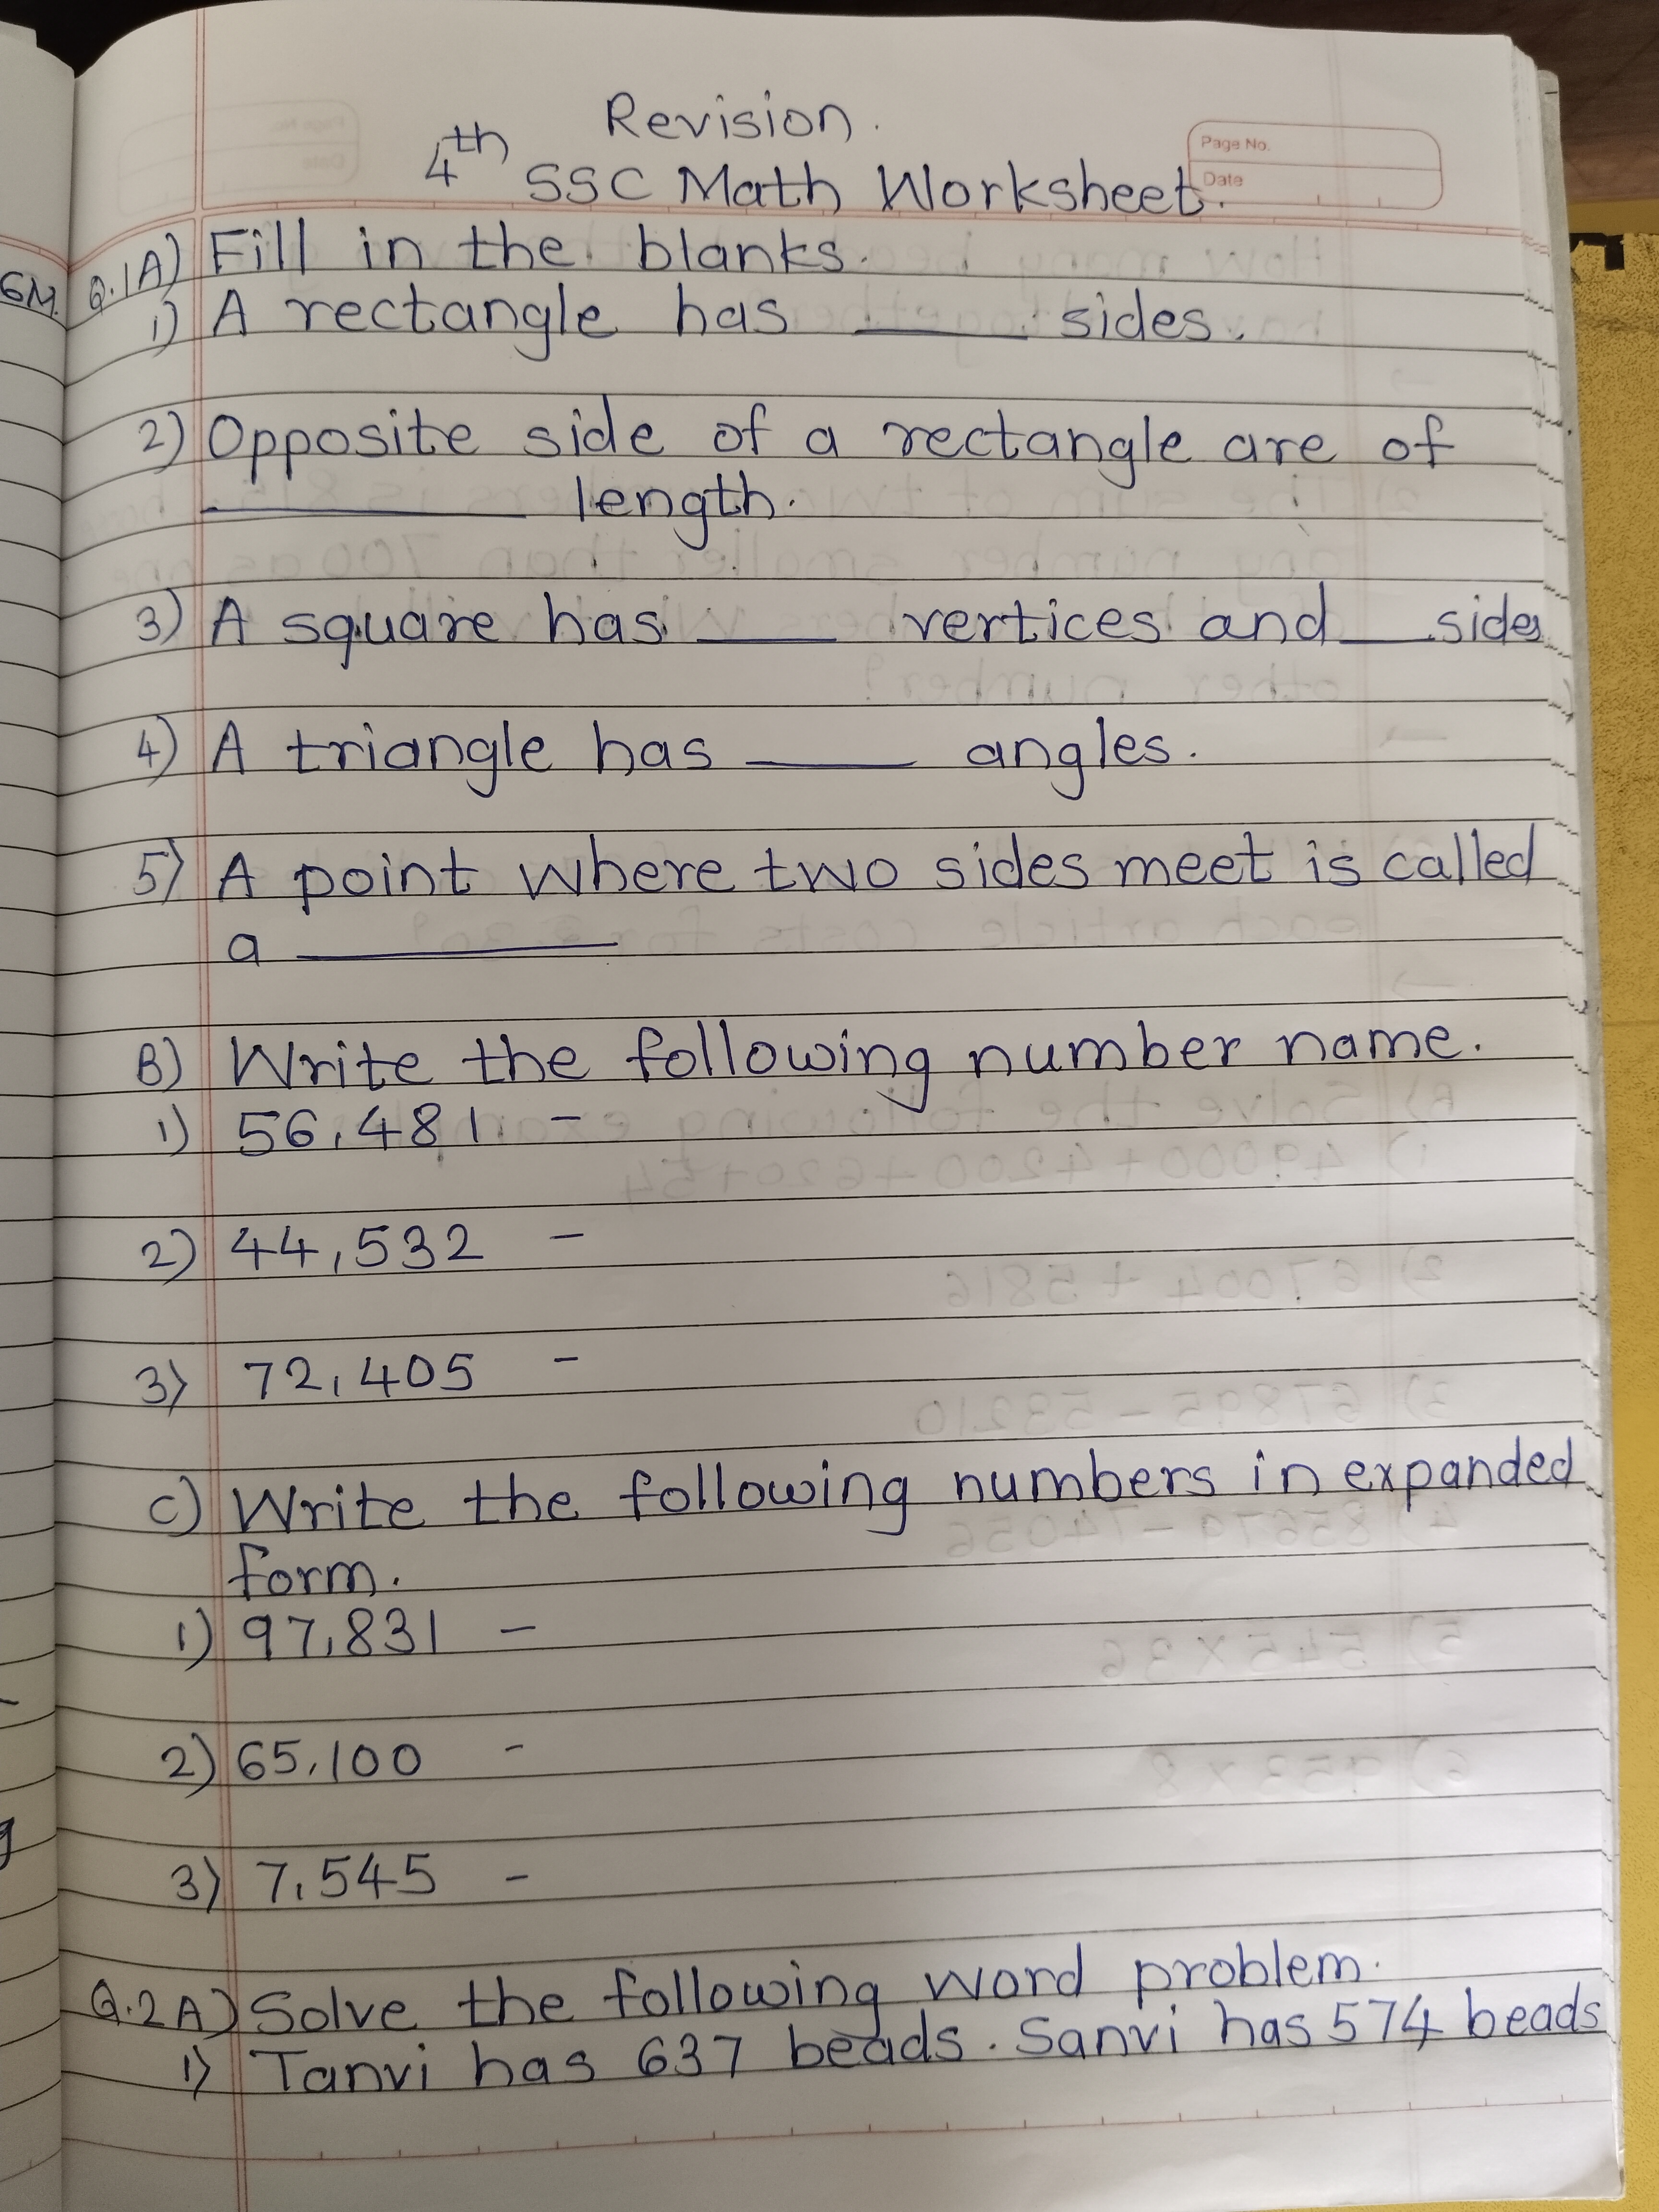 Revision.
4th SSC Math Worksheet.
Page No.
Date
6M. Q.1A) Fill in the blanks.
1) A rectangle has ____ sides.
2) Opposite side of a rectangle are of
____ length.
3) A square has ____ vertices and ____ sides
4) A triangle has ____ angles.
5) A point where two sides meet is called
a ____
B) Write the following number name.
1) 56,481 -
2) 44,532 -
3) 72,405 -
C) Write the following numbers in expanded
form.
1) 97,831 -
2) 65,100 -
3) 7,545 -
Q.2A) Solve the following word problem.
1) Tanvi has 637 beads. Sanvi has 574 beads